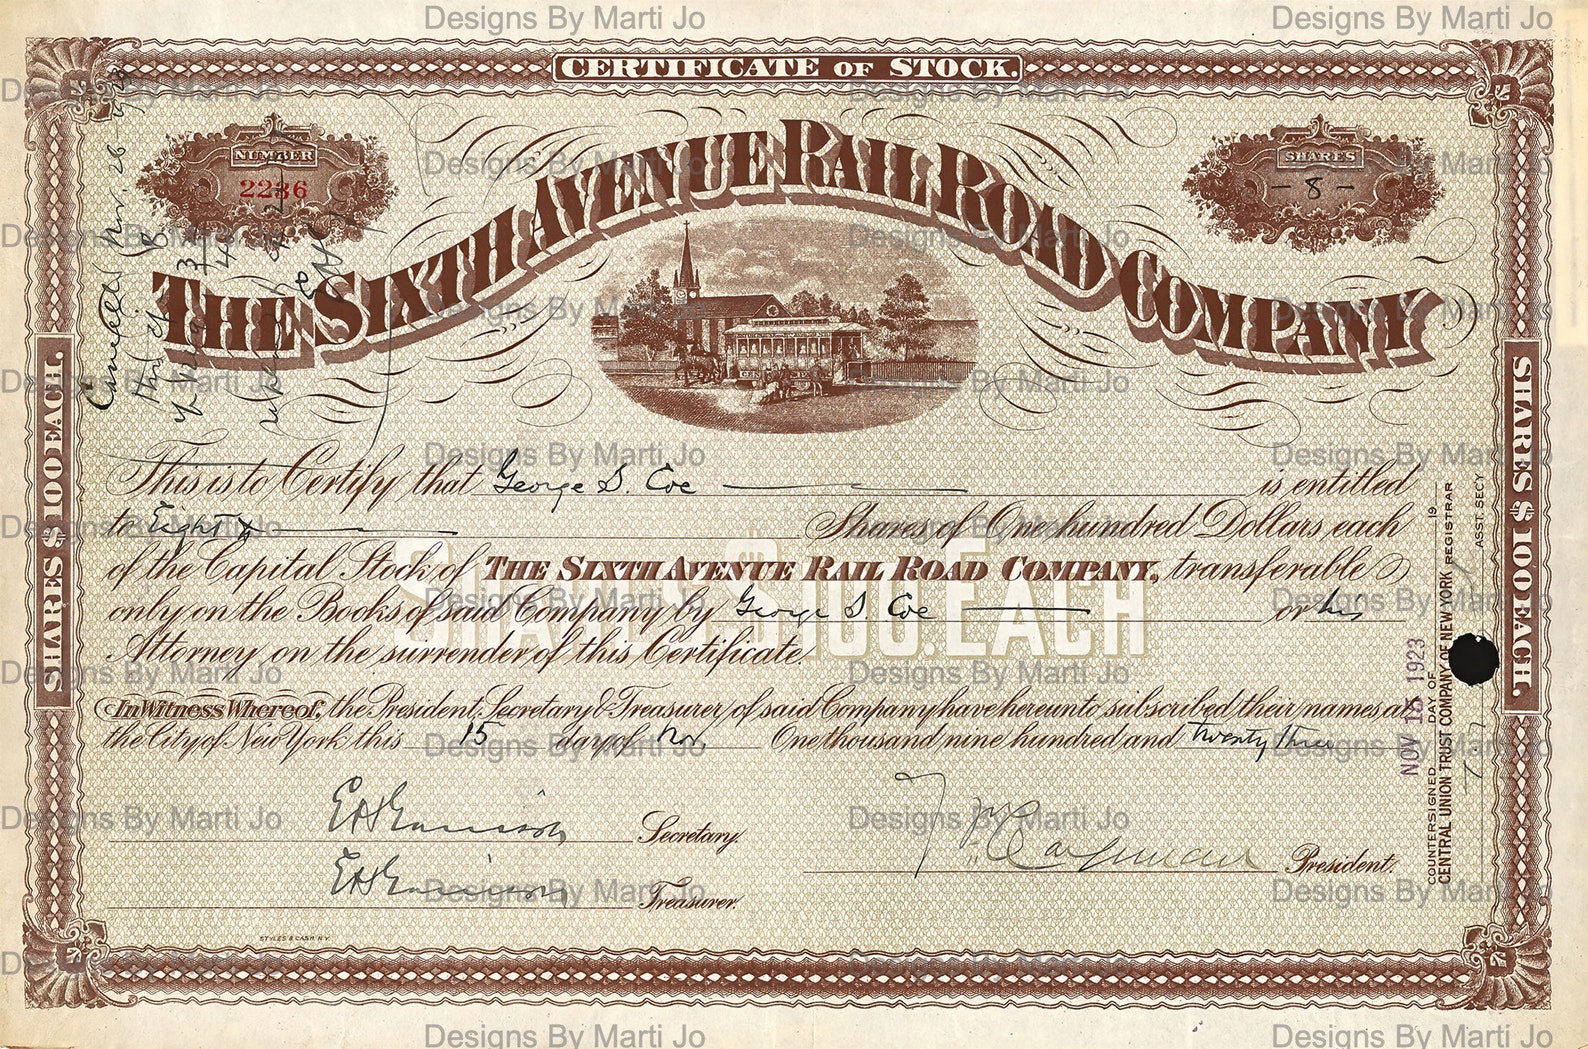 Designs By Marti Jo
CERTIFICATE OF STOCK.
NUMBER
2236
SHARES
- 8 -
THE SIXTH AVENUE RAIL ROAD COMPANY
Cancelled Nov. 26 - 1923
SHARES $100 EACH.
SHARES $100 EACH.
This is to Certify that George S. Coe is entitled
to Eight Shares of One hundred Dollars each
of the Capital Stock of THE SIXTH AVENUE RAIL ROAD COMPANY, transferable
only on the Books of said Company by George S. Coe or his
Attorney on the surrender of this Certificate.
SHARES $100. EACH
In Witness Whereof, the President, Secretary & Treasurer, of said Company have hereunto subscribed their names at
the City of New York this 15 day of Nov. One thousand nine hundred and twenty three
Secretary.
President.
Treasurer.
STYLES & CASH N.Y.
NOV 15 1923
COUNTERSIGNED DAY OF 19
CENTRAL UNION TRUST COMPANY OF NEW YORK REGISTRAR
ASST. SECY